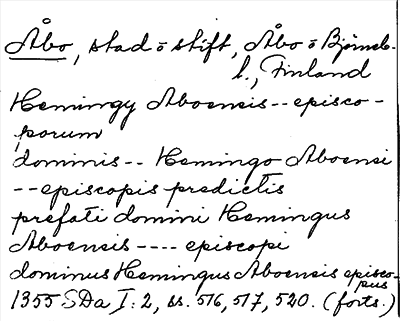 Åbo, stad o stift, Åbo o Björneb.
l., Finland
Hemingy Aboensis -- episco-
porum
dominis -- Hemingo Aboensi
-- episcopis predictis
prefati domini Hemingus
Aboensis ---- episcopi
dominus Hemingus Aboensis episco-
pus
1355 SDa I: 2, ss. 516, 517, 520. (forts.)